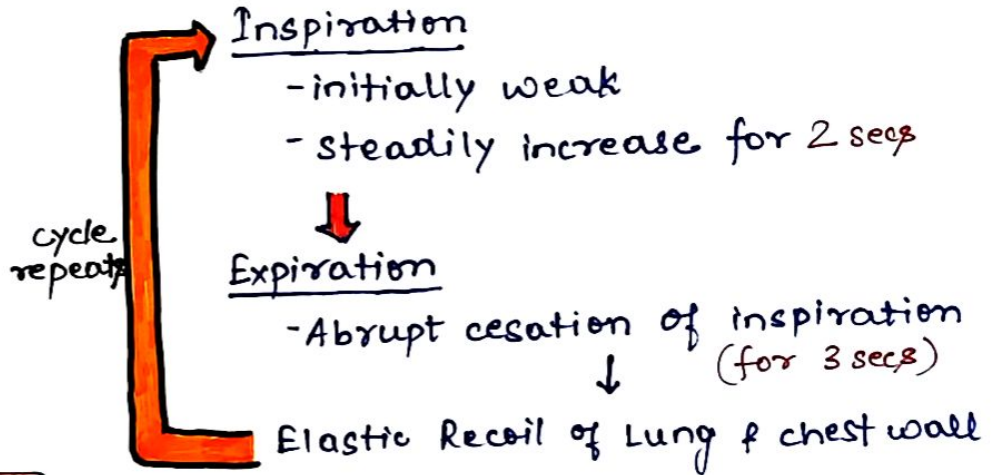 Inspiration
-initially weak
- steadily increase for 2 secs
cycle
repeats
Expiration
-Abrupt cesation of inspiration
(for 3 secs)
Elastic Recoil of Lung & chest wall